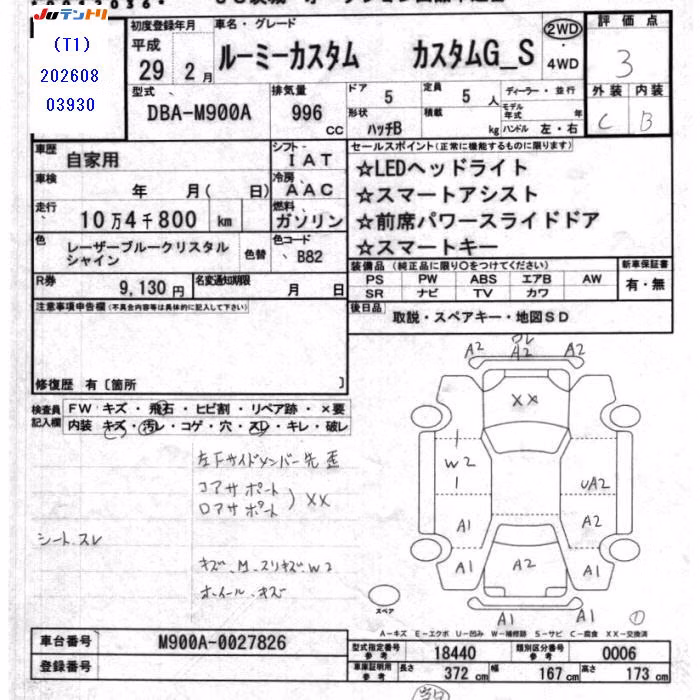 JUテントリ
(T1)
202608
03930
初度登録年月
平成
29 2月
車名・グレード
ルーミーカスタム カスタムG_S
2WD
・
4WD
評価点
3
外装 内装
C B
型式
DBA-M900A
排気量
996
CC
ドア 5
形状 ハッチB
定員 5 人
積載 kg
ディーラー・並行
モデル
年式 年
ハンドル 左・右
車歴 自家用
シフト IAT
車検 年 月( 日)
冷房 AAC
走行 10万4千800 km
燃料 ガソリン
色 レーザーブルークリスタル
シャイン
色替
色コード B82
R券 9,130円
名変通知期限 月 日
セールスポイント(正常に機能するものに限ります)
☆LEDヘッドライト
☆スマートアシスト
☆前席パワースライドドア
☆スマートキー
装備品(純正品に限り○をつけてください)
PS PW ABS エアB AW
SR ナビ TV カワ
新車保証書
有・無
後日品 取説・スペアキー・地図SD
注意事項申告欄(不具合内容等は具体的に記入して下さい)
修復歴 有〔箇所 〕
検査員
記入欄
FW キズ・飛石・ヒビ割・リペア跡・×要
内装 キズ・汚レ・コゲ・穴・スレ・キレ・破レ
左下サイドメンバー先 歪
コアサポート
ロアサポート
) XX
シート.スレ
キズ.M.スリキズ.W2
ホイール.キズ
A2 A2 A2
XX
W2
UA2
A1 A2
A1 A2 A1
A1 A1
スペア
①
A-キズ E-エクボ U-凹み W-補修跡 S-サビ C-腐食 XX-交換済
車台番号 M900A-0027826
登録番号
型式指定番号
参考
18440
類別区分番号
参考
0006
車庫証明用
参考
長さ 372 cm 幅 167 cm 高さ 173 cm